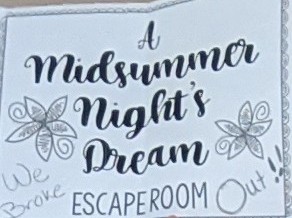 A
Midsummer
Night's
Dream
We
Broke
ESCAPEROOM Out!!